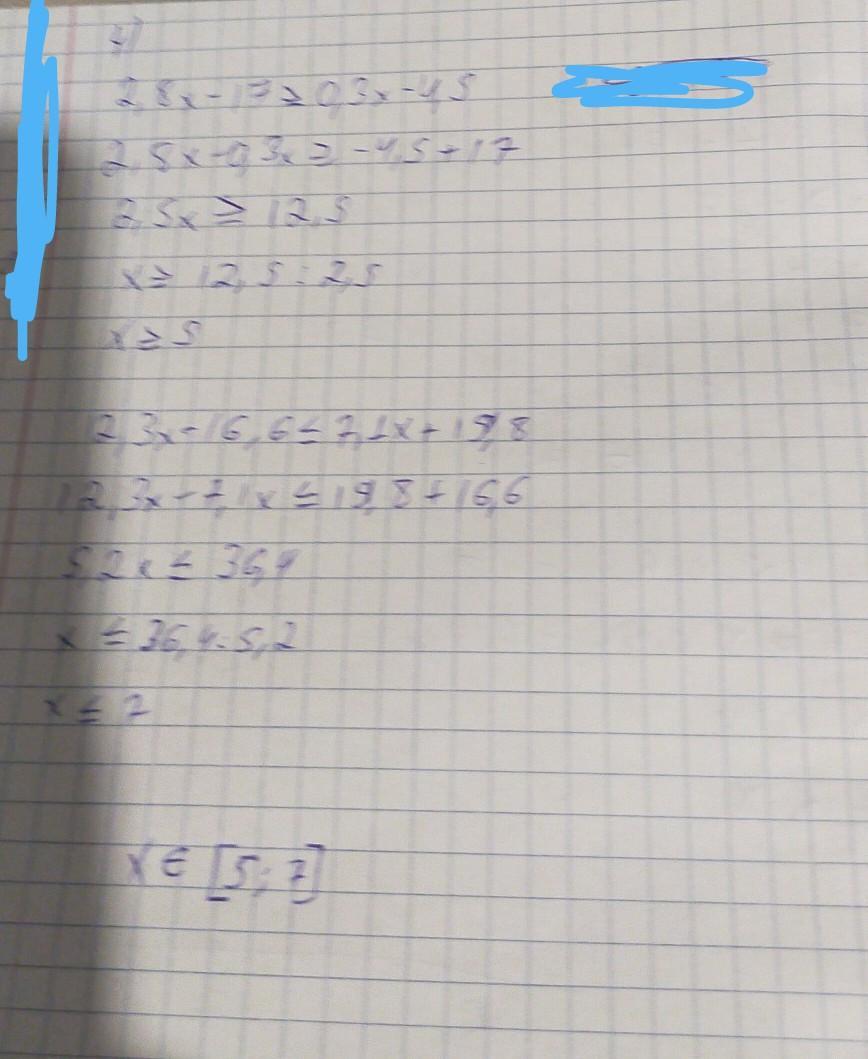 4)
2,8x-17≥0,3x-4,5
2,8x-0,3x≥-4,5+17
2,5x≥12,5
x≥12,5:2,5
x≥5
12,3x-16,6≤7,1x+19,8
12,3x-7,1x≤19,8+16,6
5,2x≤36,4
x≤36,4:5,2
x≤7
x∈[5;7]